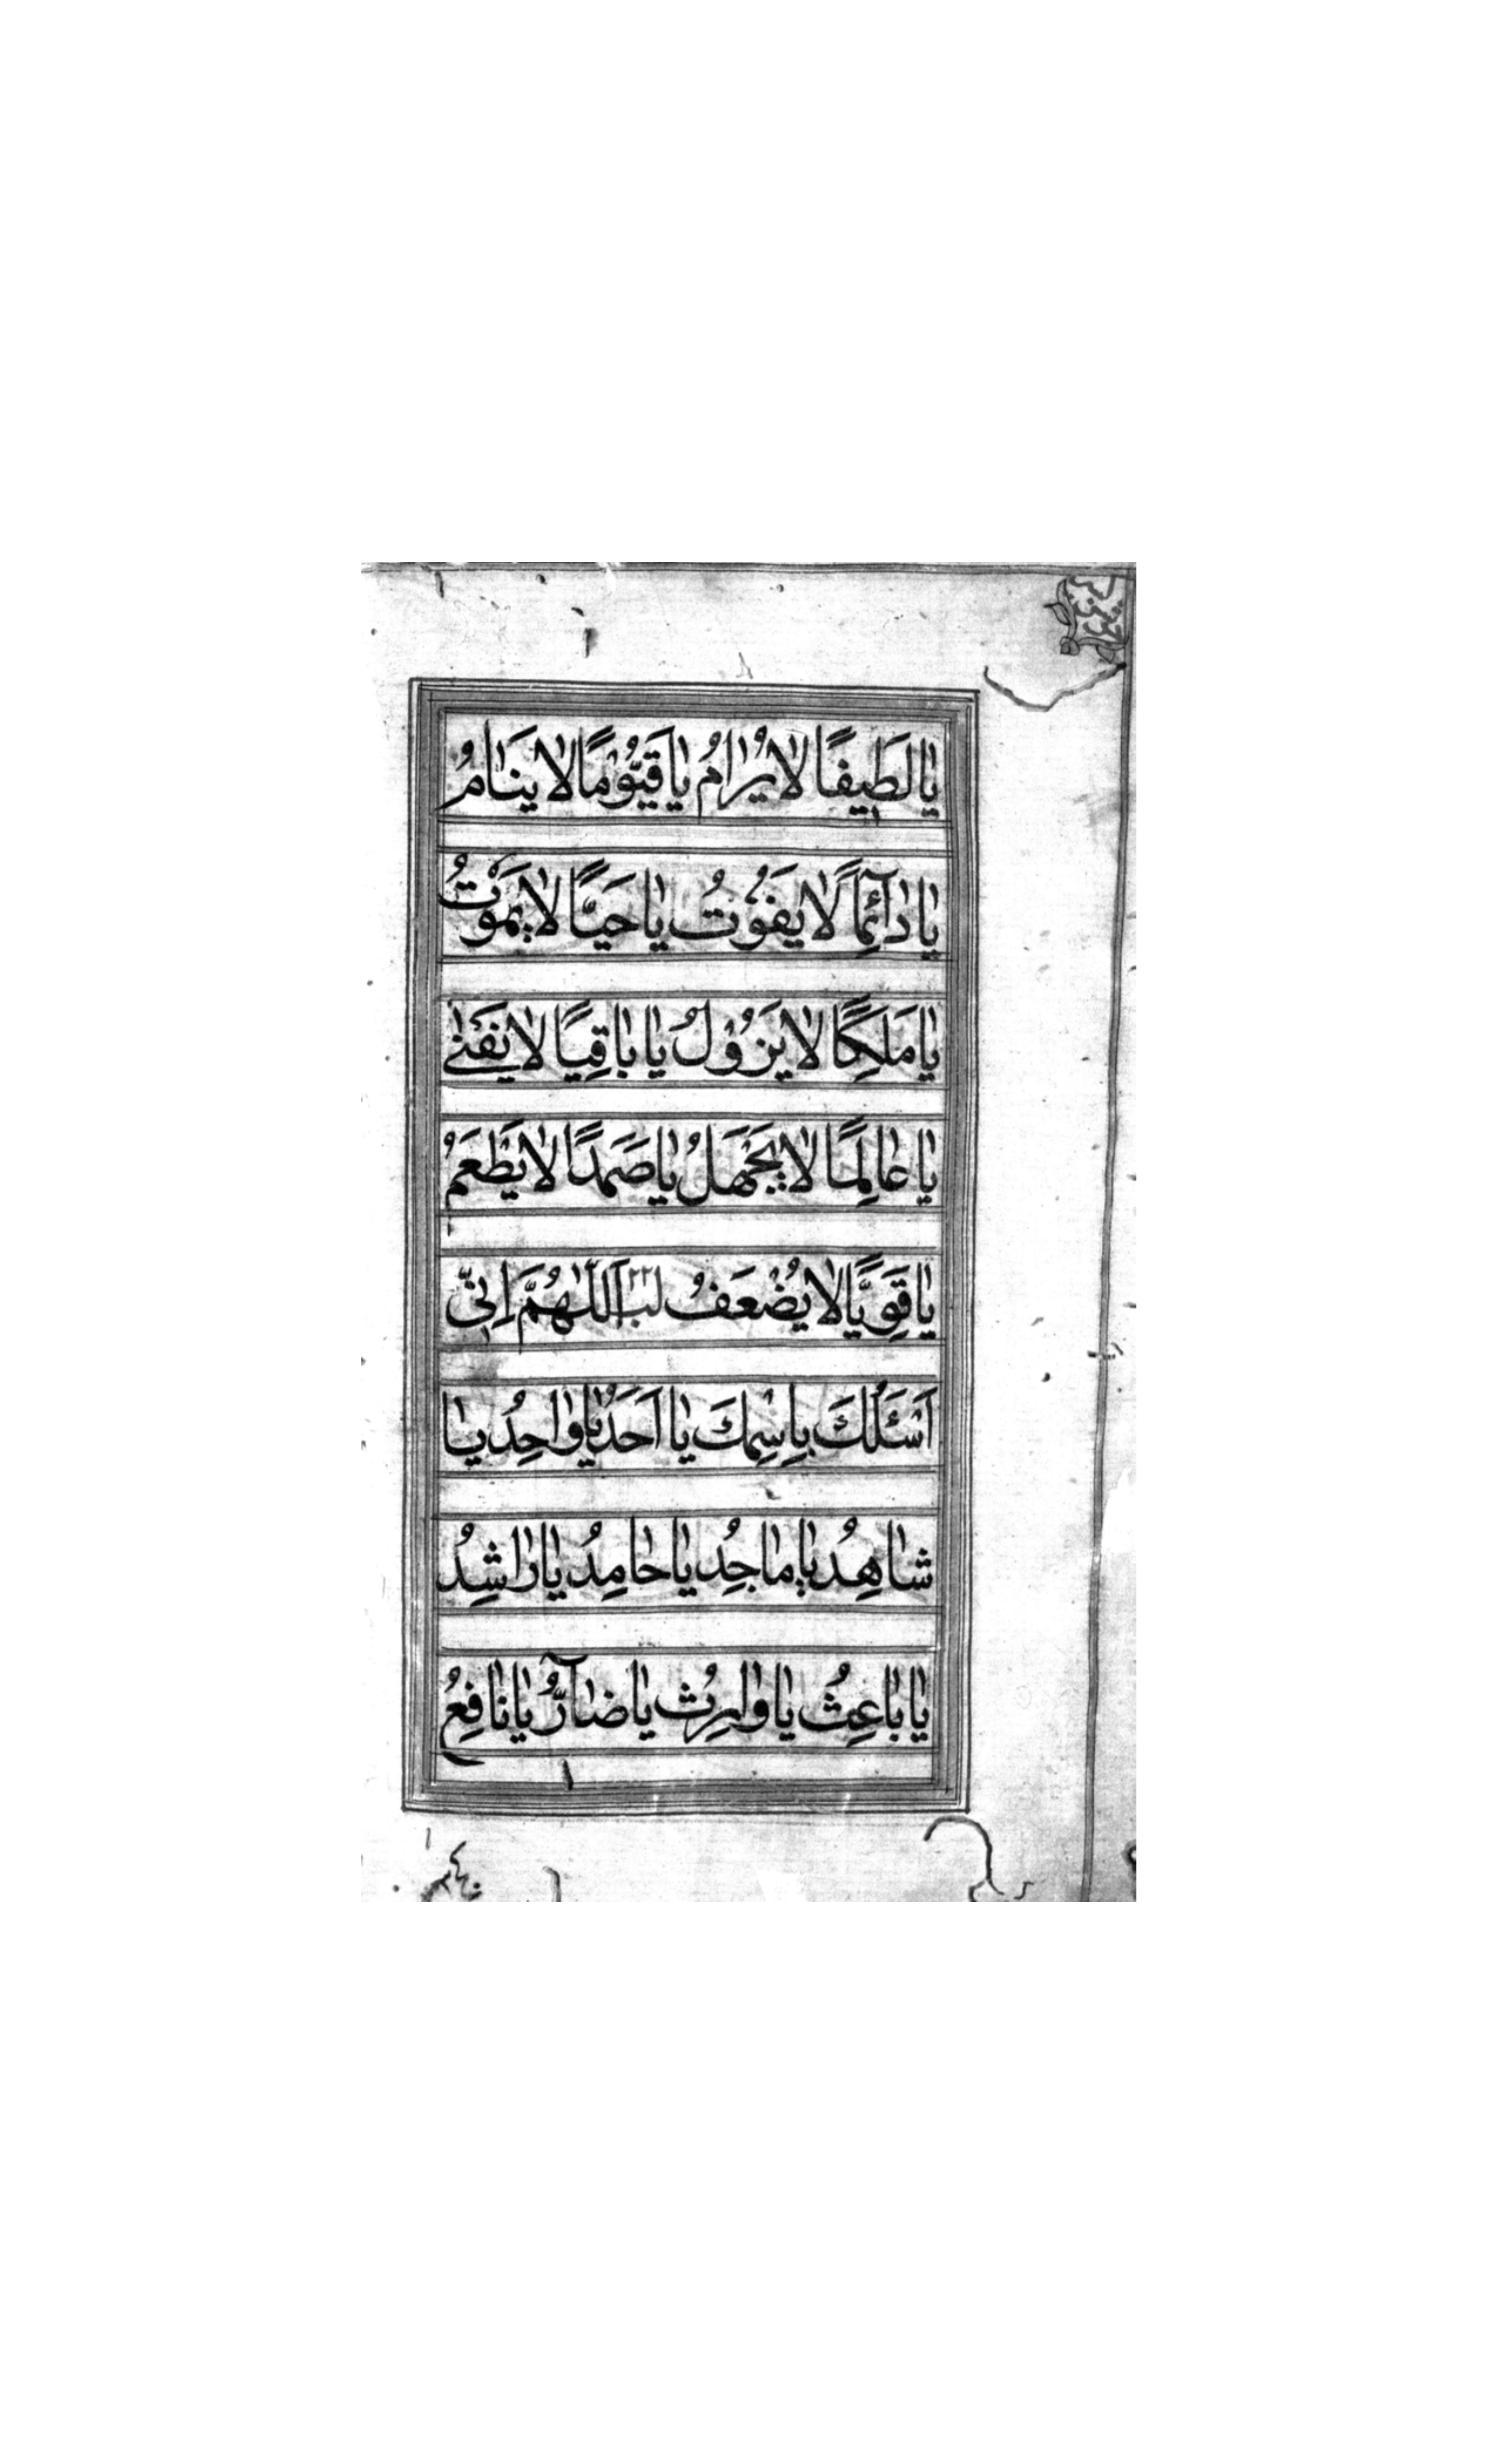 يا لَطِيفًا لا يُرامُ يا قَيُّومًا لا يَنامُ
يا دآئِمًا لا يَفُوتُ يا حَيًّا لا يَمُوتُ
يا مَلِكًا لا يَزُوْلُ يا باقِيًا لا يَفْنىٰ
يا عالِمًا لا يَجْهَلُ يا صَمَدًا لا يَطْعَمُ
يا قَوِيًّا لا يُضْعَفُ لب ٢٢ اَللّٰهُمَّ اِنّي
اَسْئَلُكَ بِاسْمِكَ يا اَحَدُ يا واحِدُ يا
شاهِدُ يا ماجِدُ يا حامِدُ يا راشِدُ
يا باعِثُ يا وارِثُ يا ضآرُّ يا نافِعُ